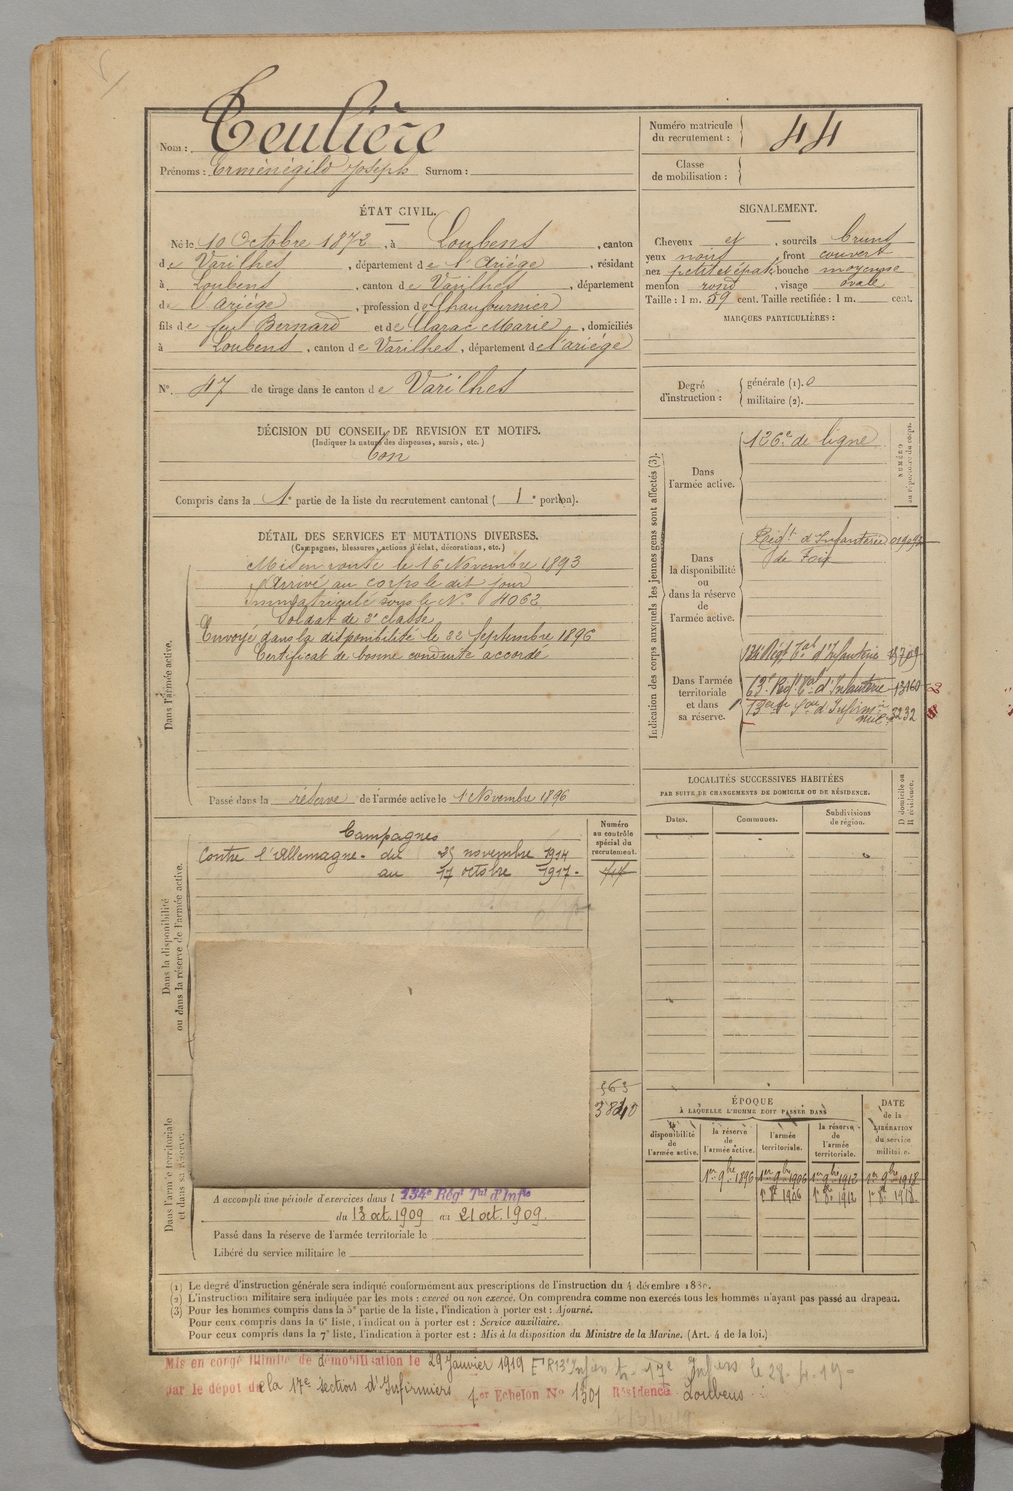 Nom : Teulière
Prénoms : Erménégild Joseph Surnom :
Numéro matricule du recrutement : 44
Classe de mobilisation :
ÉTAT CIVIL.
Né le 10 Octobre 1872, à Loubens, canton
de Varilhes, département de l'Ariège, résidant
à Loubens, canton de Varilhes, département
de l'Ariège, profession de Chaufournier
fils de feu Bernard et de Clarac Marie, domiciliés
à Loubens, canton de Varilhes, département de l'ariège
N° 47 de tirage dans le canton de Varilhes
DÉCISION DU CONSEIL DE REVISION ET MOTIFS.
(Indiquer la nature des dispenses, sursis, etc.)
bon
Compris dans la 1e partie de la liste du recrutement cantonal ( 1e portion).
SIGNALEMENT.
Cheveux et, sourcils bruns
yeux noirs, front couvert
nez petit et épat. bouche moyenne
menton rond, visage ovale
Taille : 1 m. 59 cent. Taille rectifiée : 1 m. cent.
MARQUES PARTICULIÈRES :
Degré d'instruction :
générale (1). 0
militaire (2).
DÉTAIL DES SERVICES ET MUTATIONS DIVERSES.
(Campagnes, blessures, actions d'éclat, décorations, etc.)
Dans l'armée active.
Mis en route le 16 Novembre 1893
Arrivé au corps le dit jour
Immatriculé sous le N° 4062
Soldat de 2e classe
Envoyé dans la disponibilité le 22 Septembre 1896
Certificat de bonne conduite accordé
Passé dans la réserve de l'armée active le 1 Novembre 1896
Dans la disponibilité ou dans la réserve de l'armée active.
Campagnes
Contre l'Allemagne - du 25 novembre 1914
au 17 octobre 1917 -
Numéro au contrôle spécial du recrutement.
563
3840
Dans l'armée territoriale et dans sa réserve.
A accompli une période d'exercices dans l 134e Régt Tal d'Infie
du 13 oct. 1909 au 21 oct. 1909
Passé dans la réserve de l'armée territoriale le
Libéré du service militaire le
Indication des corps auxquels les jeunes gens sont affectés (3).
NUMÉRO au répertoire du corps.
Dans l'armée active.
126e de ligne
Dans la disponibilité ou dans la réserve de l'armée active.
Régt d'Infanterie
de Foix
Dans l'armée territoriale et dans sa réserve.
134 Régt Tal d'Infanterie
63e Régt Tal d'Infanterie 13160
3232
LOCALITÉS SUCCESSIVES HABITÉES
PAR SUITE DE CHANGEMENTS DE DOMICILE OU DE RÉSIDENCE.
Dates. Communes. Subdivisions de région. D domicile ou R résidence.
ÉPOQUE
A LAQUELLE L'HOMME DOIT PASSER DANS
la disponibilité de l'armée active. la réserve de l'armée active. l'armée territoriale. la réserve de l'armée territoriale.
DATE de la LIBÉRATION du service militaire.
1er 9bre 1896 1er 9bre 1906 1er 9bre 1912 1er 9bre 1918
1r 8e 1906 1r 8e 1912 1r 8e 1918
(1) Le degré d'instruction générale sera indiqué conformément aux prescriptions de l'instruction du 4 décembre 188
(2) L'instruction militaire sera indiquée par les mots : exercé ou non exercé. On comprendra comme non exercés tous les hommes n'ayant pas passé au drapeau.
(3) Pour les hommes compris dans la 5e partie de la liste, l'indication à porter est : Ajourné.
Pour ceux compris dans la 6e liste, l'indication à porter est : Service auxiliaire.
Pour ceux compris dans la 7e liste, l'indication à porter est : Mis à la disposition du Ministre de la Marine. (Art. 4 de la loi.)
Mis en congé illimité de démobilisation le 29 Janvier 1919
par le dépôt de la 17e Section d'Infirmiers 4er Echelon N° 1301 Résidence Loubens